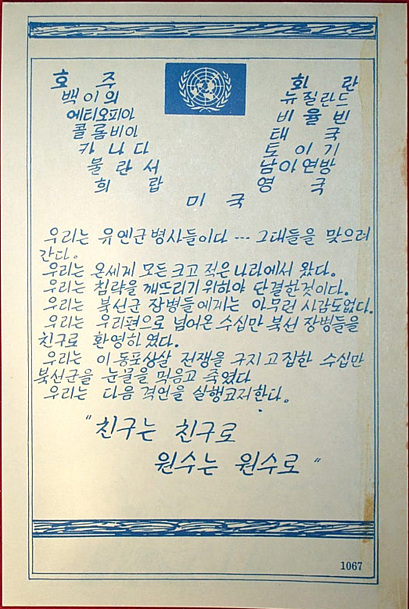 호 주 화 란
백이의 뉴질란드
에티오피아 비율빈
콜롬비아 태 국
카나다 토이기
불란서 남아연방
희 랍 영 국
미 국
우리는 유엔군병사들이다 --- 그대들을 맞으러
간다.
우리는 온세계 모든크고 적은나라에서 왔다.
우리는 침략을 깨뜨리기위하야 단결한것이다.
우리는 북선군 장병들에게는 아무런 사감도없다.
우리는 우리편으로 넘어온 수십만 북선 장병들을
친구로 환영하였다.
우리는 이동포상살 전쟁을 구지고집한 수십만
북선군을 눈물을 먹음고 죽였다
우리는 다음 격언을 실행코저한다.
"친구는 친구로
원수는 원수로"
1067